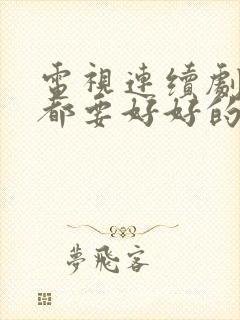 電視連續劇
都要好好的
夢飛客